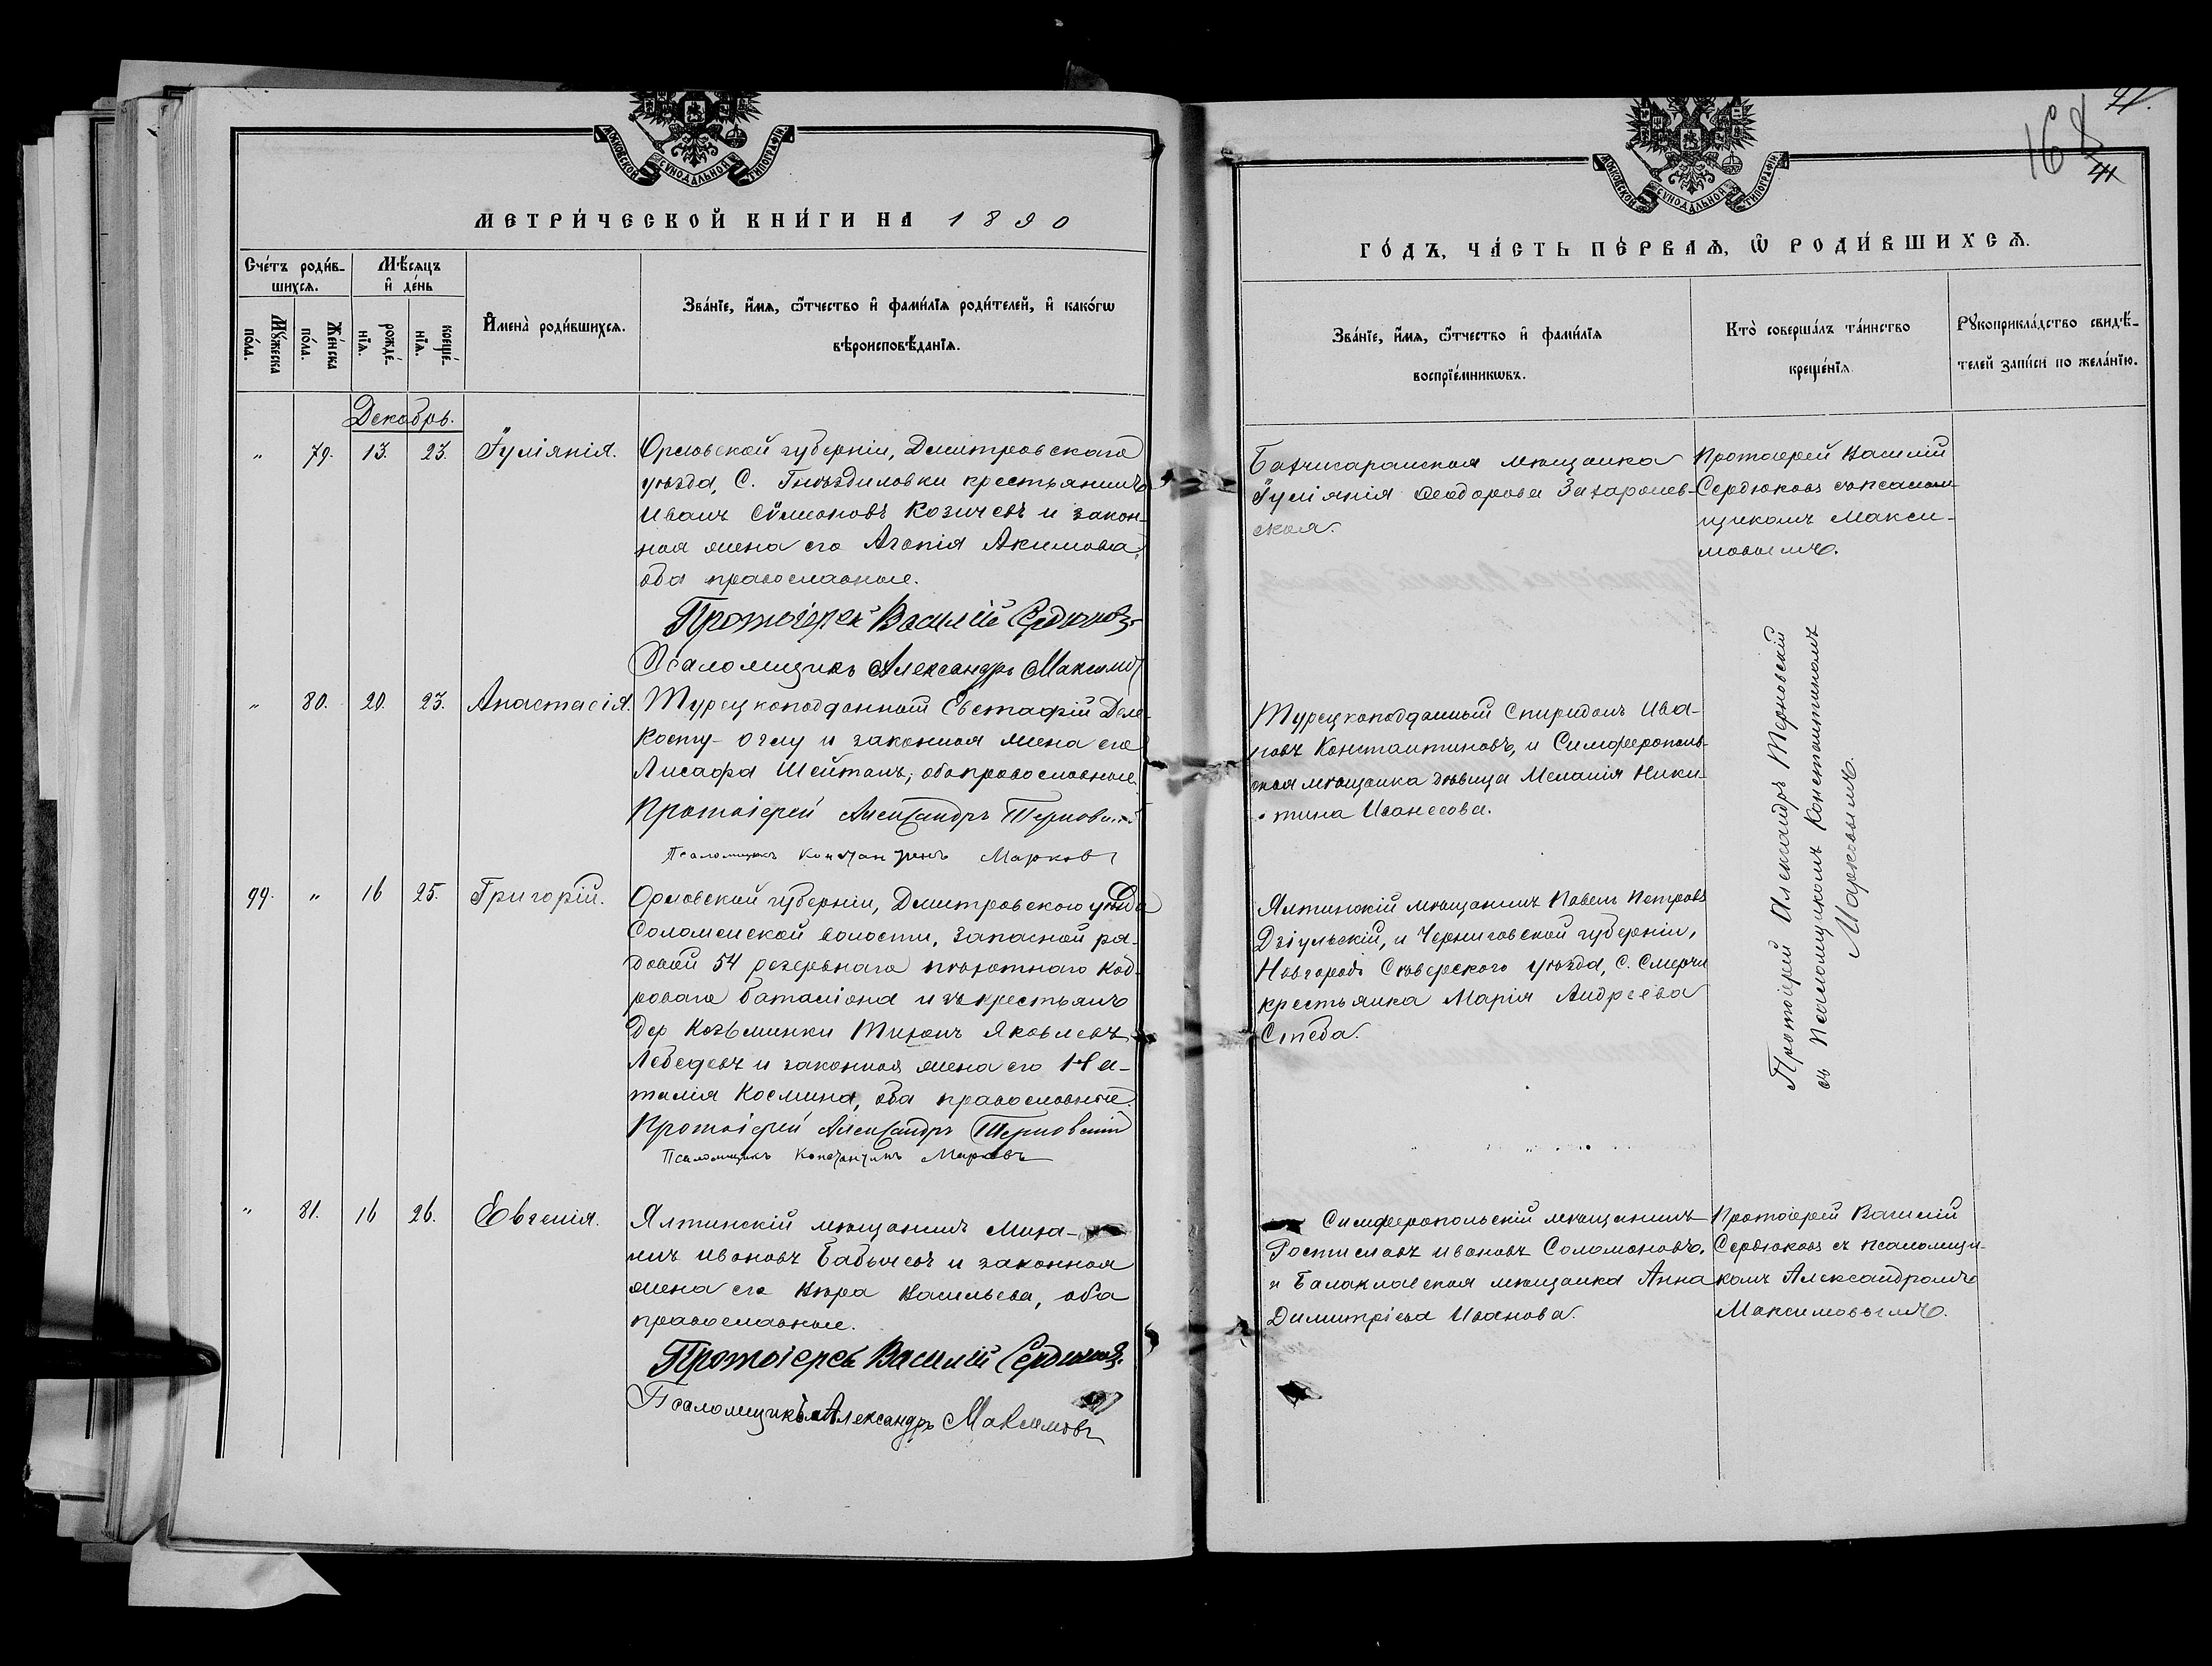 МОСКОВСКОЙ СѴНОДАЛЬНОЙ ТИПОГРАФІИ
МЕТРИ́ЧЕСКОЙ КНИ́ГИ НА 1890
Сче́тъ роди́в-
шихсѧ.
Мѣ́сѧцъ
и҆ де́нь
Мꙋ́жеска
по́ла.
Же́нска
по́ла.
рожде́-
нїѧ.
креще́-
нїѧ.
И҆мена̀ роди́вшихсѧ.
Зва́нїе, и҆́мѧ, ѻ҆́тчество и҆ фами́лїѧ роди́телей, и҆ како́гѡ
вѣроисповѣ́данїѧ.
Декабрь.
" 79. 13. 23. Іуліянія.
Орловской губерніи, Дмитровскаго
уѣзда, С. Гнѣздиловки крестьянинъ
Иванъ Сѵмеоновъ Козичевъ и закон-
ная жена его Агапія Акимова,
оба православные.
Протоіерей Василій Сердюковъ
Псаломщикъ Александръ Максимов
" 80. 20. 23. Анастасія.
Турецкоподданный Евстафій Деле-
Косту-оглу и законная жена его
Лисафа Шейтанъ, оба православные
Протоіерей Александръ Терновскій
Псаломщикъ Константинъ Марковъ
99. " 16 25. Григорій.
Орловской губерніи, Дмитровскаго уѣзда
Соломенской волости, запасной ря-
довой 54 резервнаго пѣхотнаго кад-
роваго баталіона изъ крестьянъ
Дер Козьминки Тихонъ Яковлевъ
Лебедевъ и законная жена его На-
талія Космина, оба православные.
Протоіерей Александръ Терновскій
Псаломщикъ Константинъ Марковъ
" 81. 16 26. Евгенія.
Ялтинскій мѣщанинъ Миха-
илъ Ивановъ Бабычевъ и законная
жена его Кира Васильева, оба
православные.
Протоіерей Василій Сердюковъ.
Псаломщикъ Александръ Максимовъ
168
41
МОСКОВСКОЙ СѴНОДАЛЬНОЙ ТИПОГРАФІИ
ГО́ДЪ, ЧА́СТЬ ПЕ́РВАѦ, Ѡ҆ РОДИ́ВШИХСѦ.
Зва́нїе, и҆́мѧ, ѻ҆́тчество и҆ фами́лїѧ
воспрїе́мникѡвъ.
Кто̀ соверша́лъ та́инство
креще́нїѧ
Рꙋкоприкла́дство свидѣ́-
телей за́писи по жела́нїю.
Бахчисарайская мѣщанка
Іуліянія Ѳеодорова Захаржев-
ская.
Протоіерей Василій
Сердюковъ съ псалом-
щикомъ Макси-
мовымъ.
Турецкоподданный Спиридонъ Ива-
новъ Константиновъ, и Симферополь-
ская мѣщанка дѣвица Меланія Ники-
тина Иванесова.
Ялтинскій мѣщанинъ Павелъ Петровъ
Дзіульскій, и Черниговской губерніи,
Новгородъ Сѣверского уѣзда, С. Смерчи
крестьянка Марія Андреева
Стеба.
Протоіерей Александръ Терновскій
съ Псаломщикомъ Константиномъ
Марковымъ.
Симферопольскій мѣщанинъ
Ростиславъ Ивановъ Соломоновъ,
и Балаклавская мѣщанка Анна
Димитріева Иванова.
Протоіерей Василій
Сердюковъ съ псаломщи-
комъ Александромъ
Максимовымъ.